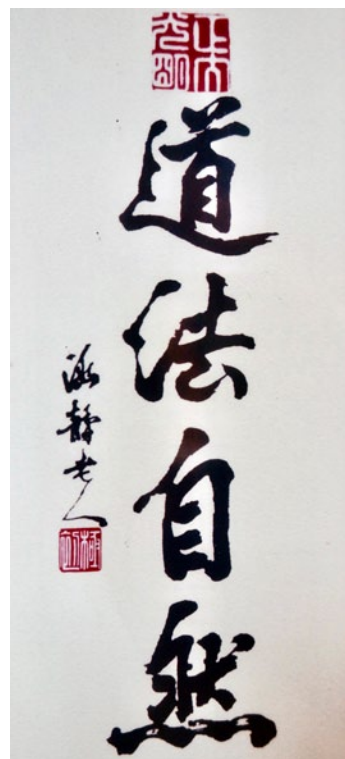 道法自然
涵靜老人
極初